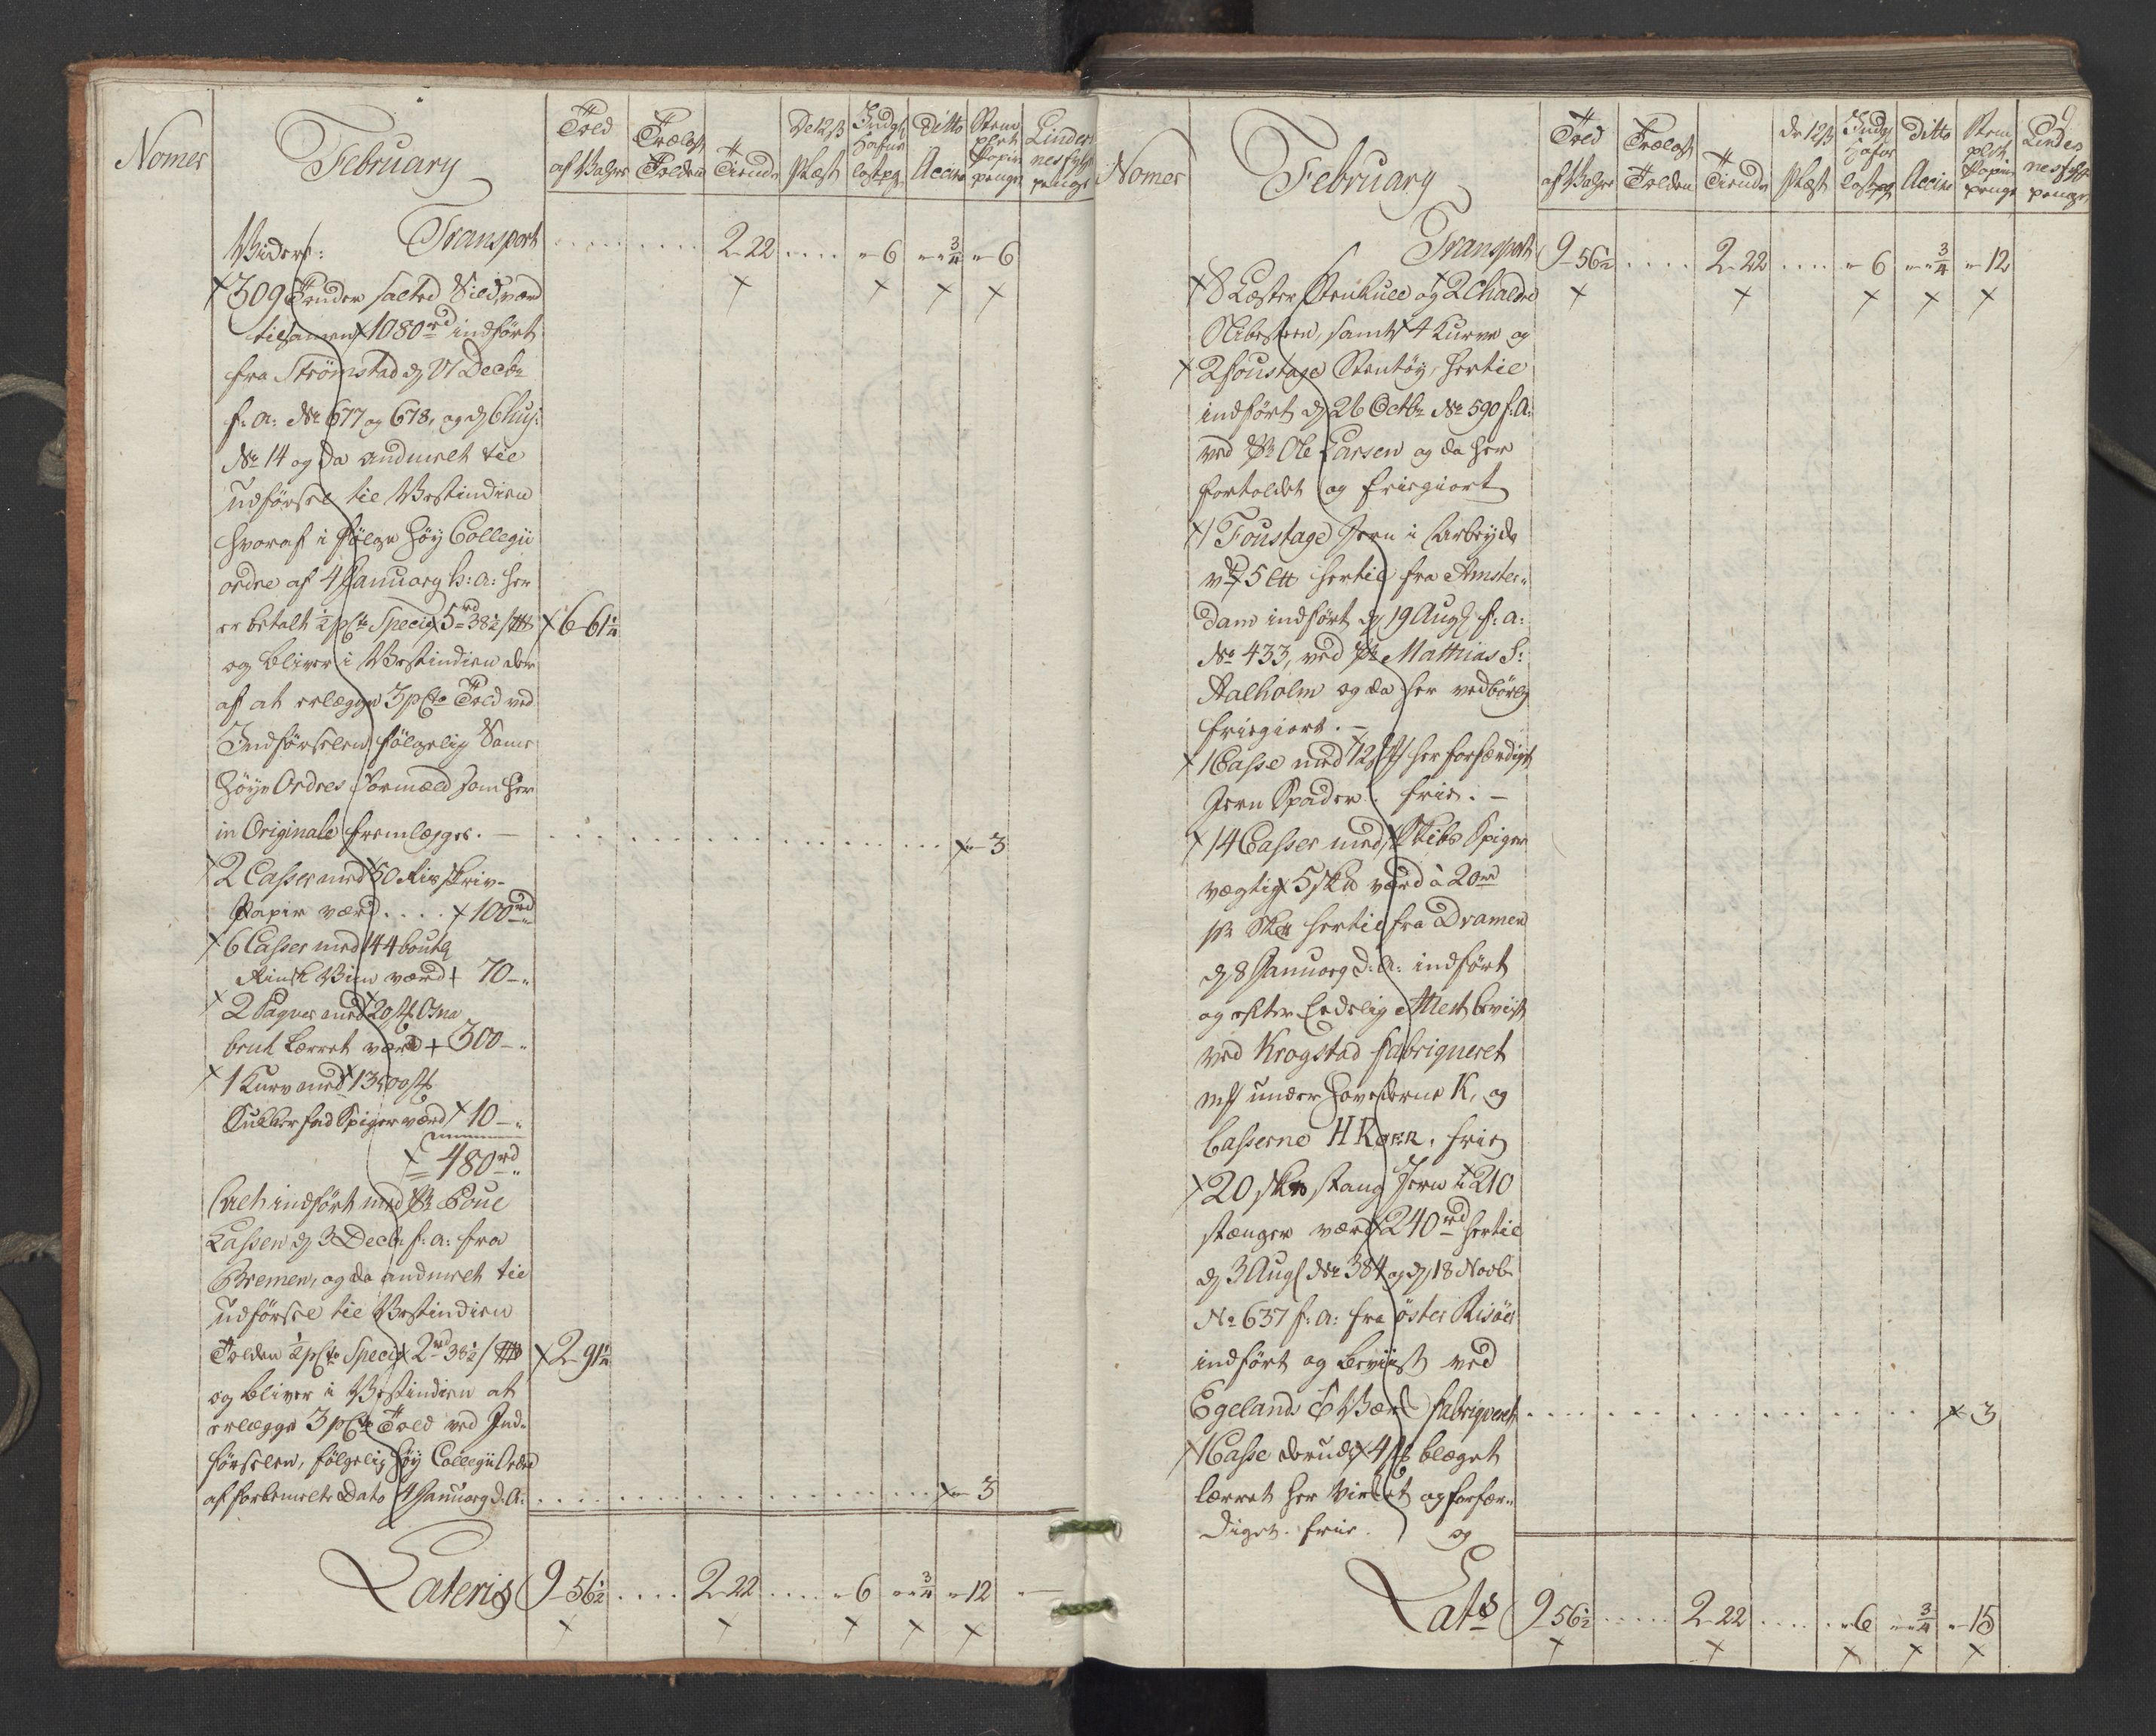 Nomer
February
Told
af Vahrer
Trælast
Tolden
Tiende
De 12 s
pLæst
Indg.
Hafne
lastpg.
Ditto
Accise
Stem
plet
Papiir
penge
Lindes
nes fyhr
penge
Viders: Transport ........ 2-22 .... " 6 " " 3/4 " 6
309 Tønder salted Sild, værd
tilsamen 1080 rd indført
fra Strømstad d 21 Decbr
f: a: No 677 og 678, og d 6 huj:
No 14 og da andmelt til
udførsel til Vestindien
hvoraf i følge høy Collegii
ordre af 4 January h: a: her
er betalt 1/2 pCto Specie 5 rd 38 1/2 s 6-61 1/4
og bliver i Vestindien der
af at erlægge 3 pCto Told ved
Indførselen, følgelig Same
høye Ordres Formæld som her
in Originale fremlægges. — 3
2 Casser med 50 Ris Skriv-
Papir værd .... 100 rd "
6 Casser med 144 boutl
Rinsk Viin værd 70 - "
2 Paquer med 20 st Osna
bruk Lærret værd 300 - "
1 Kurv med 13500 st
Sukkerfad Spiger værd 10 - "
480 rd "
Alt indført med Skr Poul
Lassen d 3 Decbr f: a: fra
Bremen, og da andmelt til
udførsel til Vestindien
Tolden 1/2 pCto Specie 2 rd 38 1/2 s 2-91 1/4
og bliver i Vestindien at
erlægge 3 pCto Told ved Ind-
førselen, følgelig høy Collegii Ordre
af forbemelte Dato 4 January d: A: 3
Lateris 9-56 1/2 .... 2-22 .... " 6 " " 3/4 " 12 "—
9
Nomer
February
Told
af Vahre
Trælast
Tolden
Tiende
de 12 s
pLæst
Indg
Hafne
lastpg
Ditto
Accise
Stem
plet
Papiir
penge
Lindes
nes fyhr
penge
Transport 9-56 1/2 .... 2-22 .... " 6 " " 3/4 " 12
8 Læster Steenkull og 2 Chaldr
Slibesteen, samt 4 Kurve og
2 foustage Stentøy, hertil
indført d 26 Octbr No 590 f: A:
ved Skr Ole Larsen og da her
fortoldet og friegiort
1 Foustage Jern i Arbeyde
v: 5 Ctt hertil fra Amster-
dam indført d 19 Aug f: a:
No 433, ved Skr Mathias S:
Aalholm og da her vedbørlig
friegiort. —
1 Casse med 12 st her forfærdiget
Jern Spader. frie. —
14 Casser med Skibs Spiger
vægtig 5 sk værd à 20 rd
pr Sk hertil fra Dramen
d 8 January d: A: indført
og efter Endelig Attest beviist
ved Krogstad fabriqueret
under hovederne K, og
Casserne HK frie
20 sk Stang Jern i 210
stænger værd 240 rd hertil
d 3 Aug No 384 og d 18 Novbr
No 637 f: A: fra Øster Risøer
indført og beviist ved
Egelands Værk fabriqueret .... 3
1 Casse 4 st bleget
lærret her virket og forfær-
diget. frie. og
Lats 9 56 1/2 .... 2-22 .... " 6 " " 3/4 " 15